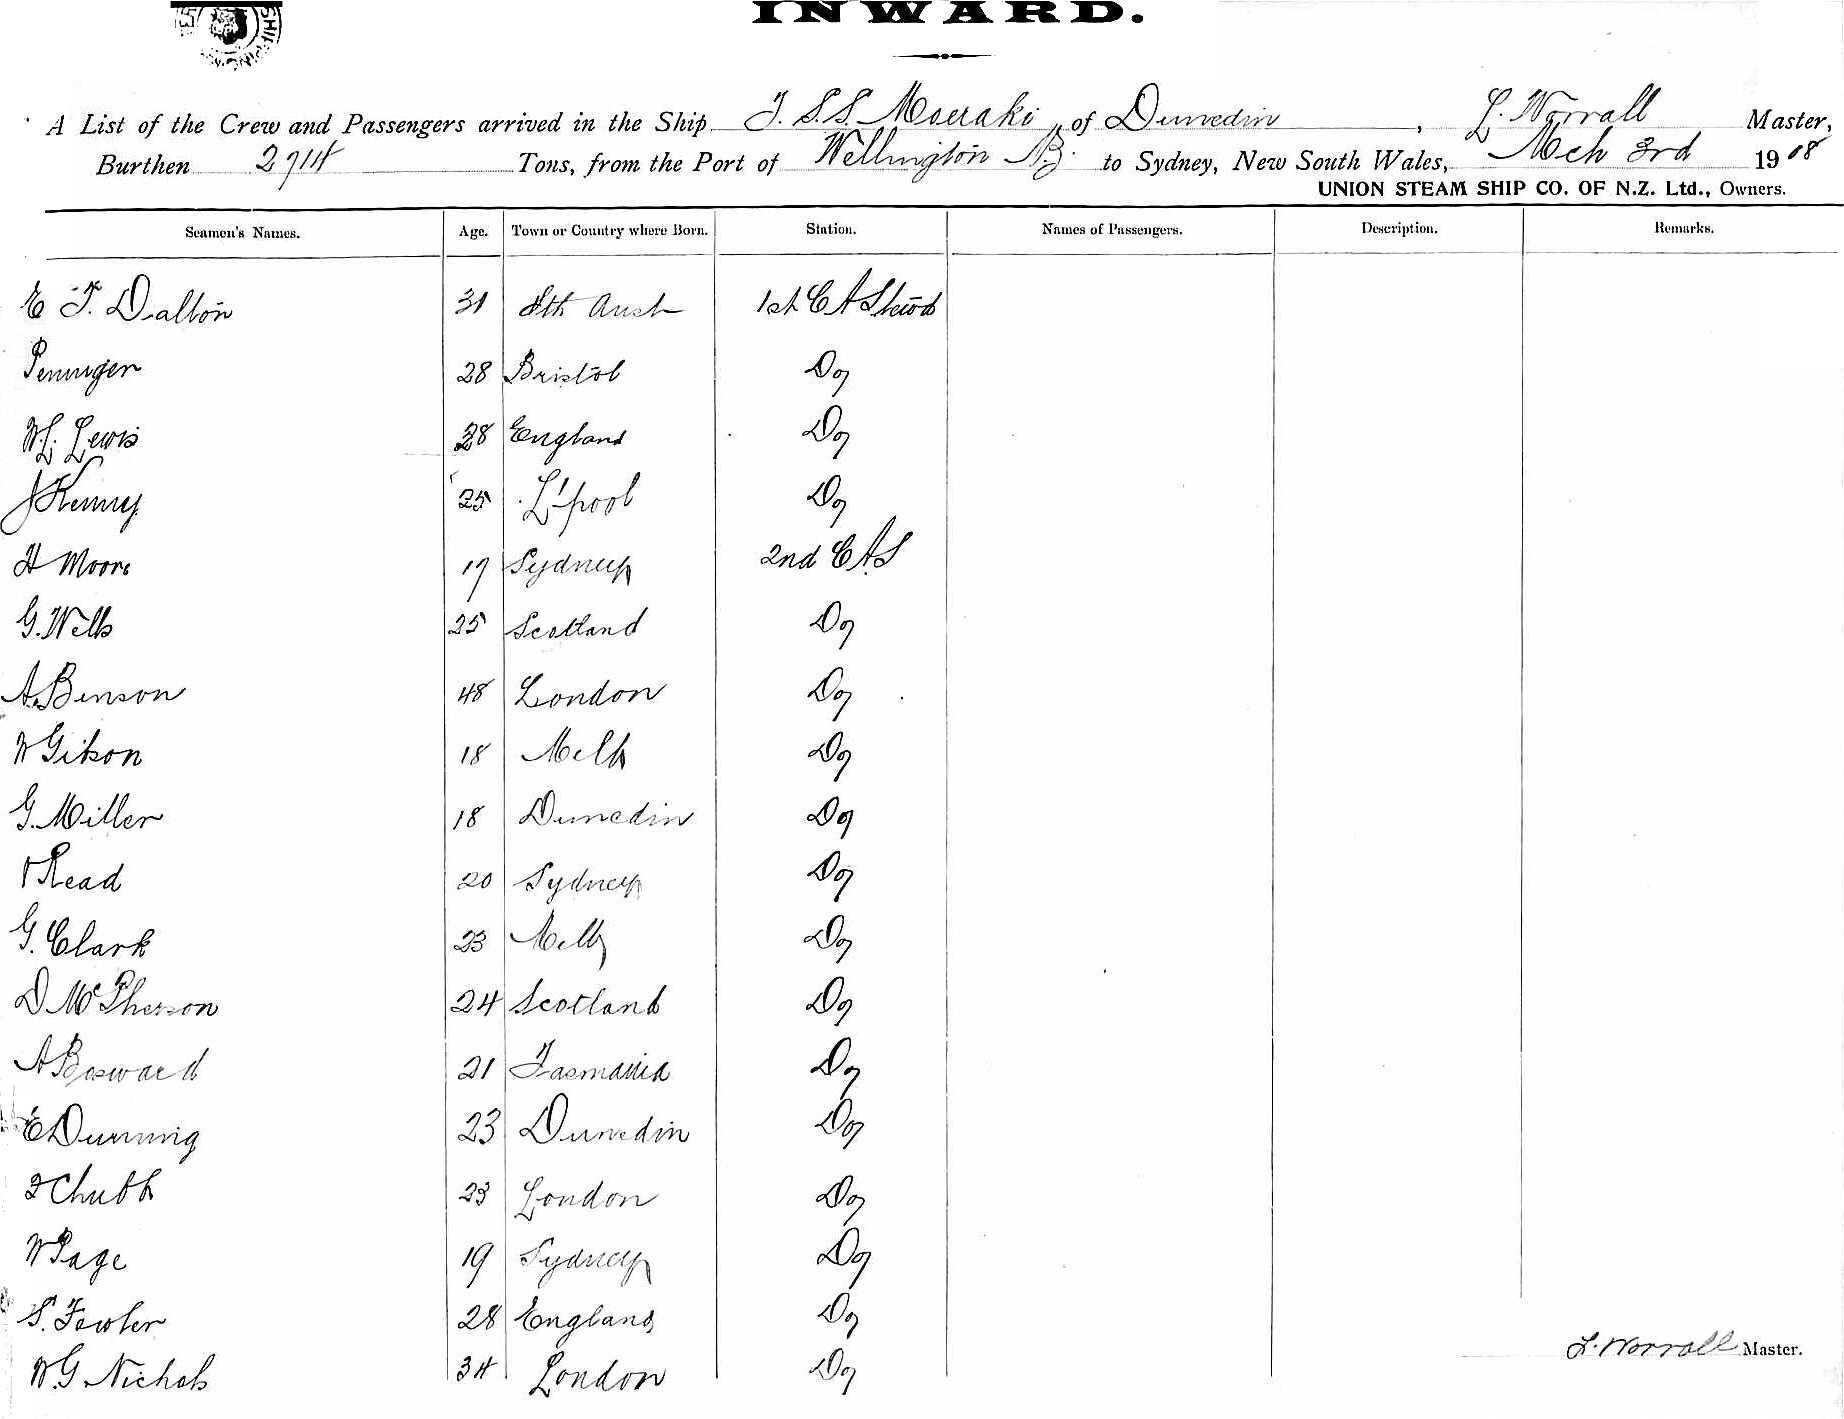 INWARD.
A List of the Crew and Passengers arrived in the Ship T. S.S. Moeraki, of Dunedin, L. Worrall Master,
Burthen 2714 Tons, from the Port of Wellington N.Z. to Sydney, New South Wales, Mch 3rd 1908
UNION STEAM SHIP CO. OF N.Z. Ltd., Owners.
Seamen's Names. Age. Town or Country where Born. Station. Names of Passengers. Description. Remarks.
E T. Dalton 31 Sth Aust 1st C A Stewd
28 Bristol Do
W.L. Lewis 28 England Do
J Kenny 25 L'pool Do
H Moore 17 Sydney 2nd C A S
G. Wells 25 Scotland Do
A. Benson 48 London Do
W Gibson 18 Melb Do
G. Miller 18 Dunedin Do
Read 20 Sydney Do
G. Clark 23 Melb Do
D McPherson 24 Scotland Do
A Bosward 21 Tasmania Do
E Dunning 23 Dunedin Do
Chubb 23 London Do
W Page 19 Sydney Do
S. Fowler 28 England Do
L. Worrall Master.
W.G. Nichols 34 London Do